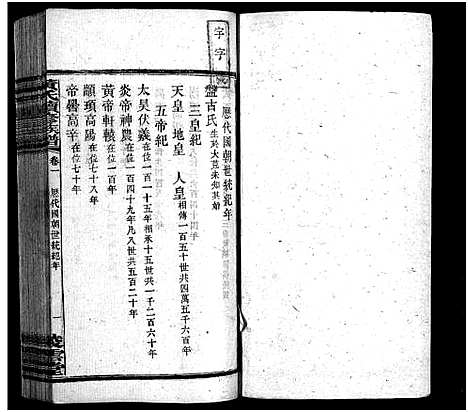 字字
歷代國朝世統紀年
盤古氏 生於大荒未知其始
三皇紀
天皇 地皇 人皇 相傳一百五十世共四萬五千六百年
五帝紀
太昊伏羲 在位一百一十五年相承十五世共一千二百六十年
炎帝神農 在位一百四十九年凡八世共五百二十年
黃帝軒轅 在位一百年
顓頊高陽 在位七十八年
帝嚳高辛 在位七十年
卷一 歷代國朝世統紀年 一